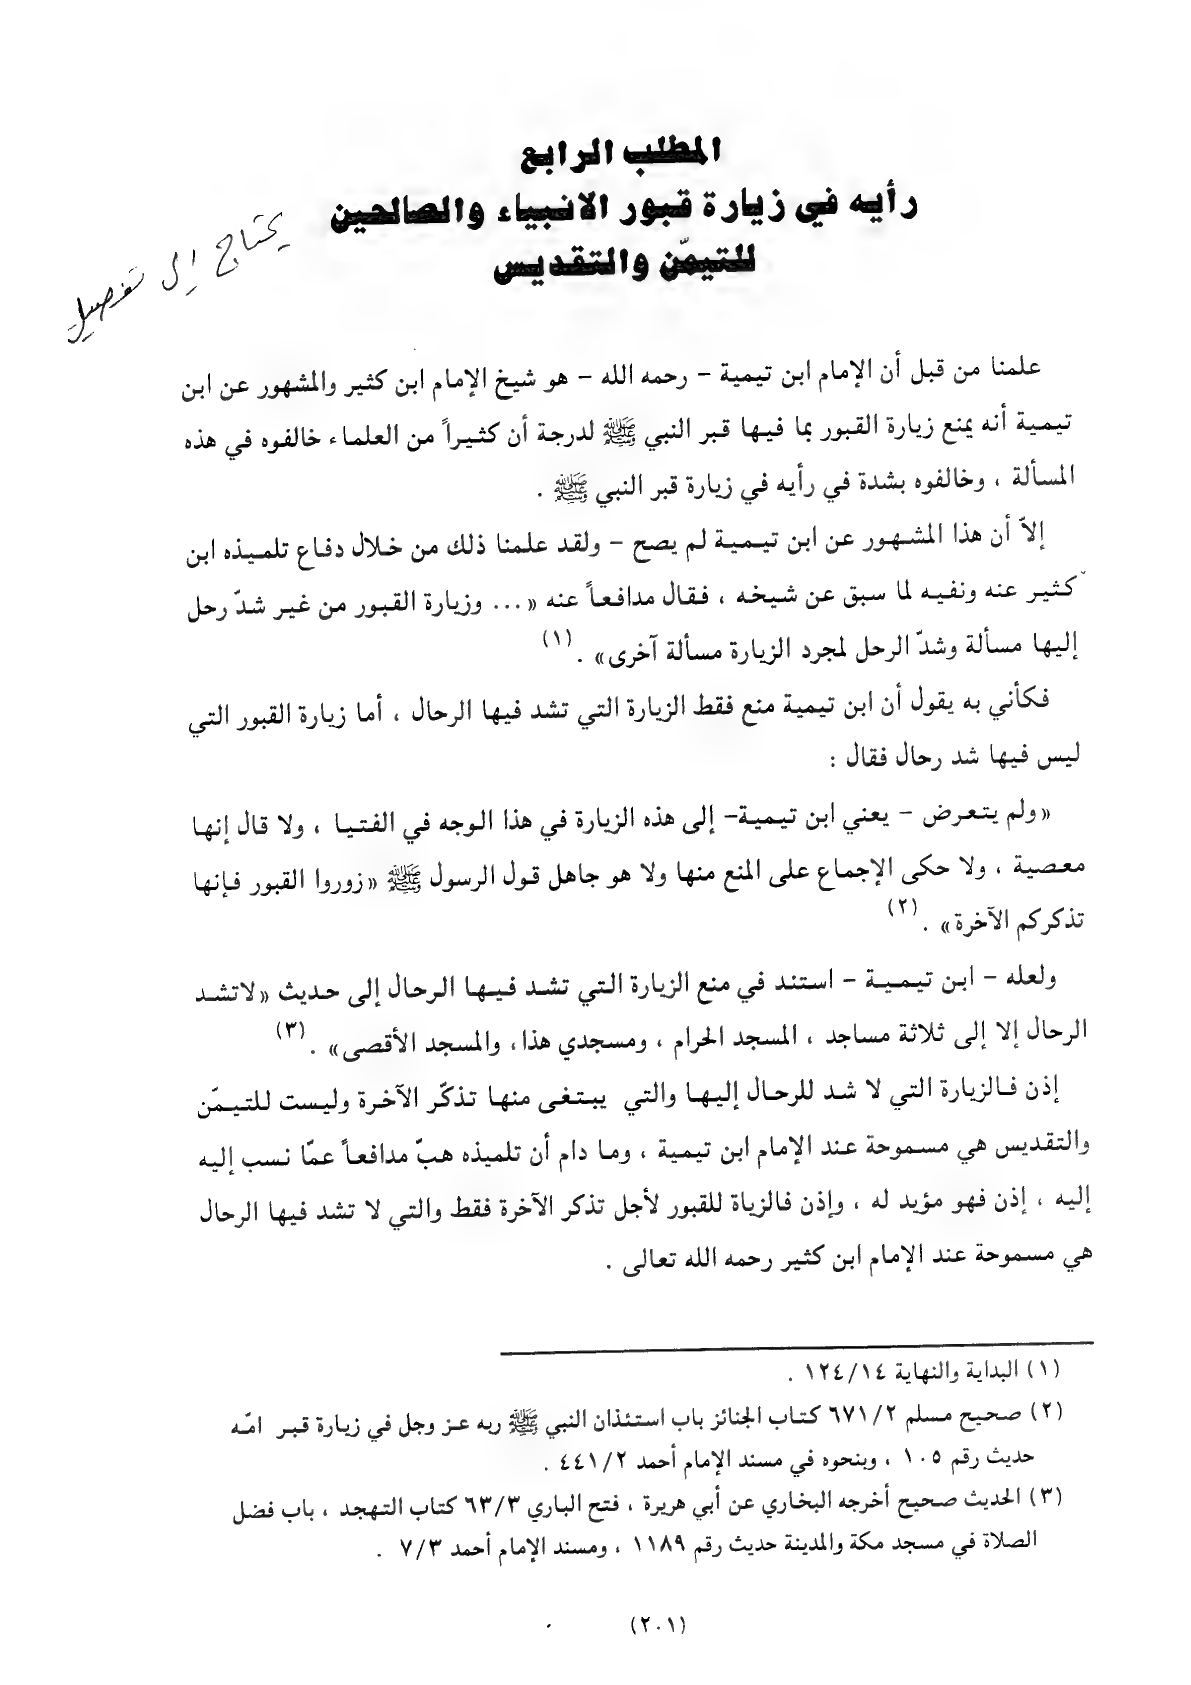 المطلب الرابع
رأيه في زيارة قبور الانبياء والصالحين
للتيمّن والتقديس
يحتاج إلى تفصيل
علمنا من قبل أن الإمام ابن تيمية – رحمه الله – هو شيخ الإمام ابن كثير والمشهور عن ابن
تيمية أنه يمنع زيارة القبور بما فيها قبر النبي ﷺ لدرجة أن كثيراً من العلماء خالفوه في هذه
المسألة ، وخالفوه بشدة في رأيه في زيارة قبر النبي ﷺ .
إلاّ أن هذا المشهور عن ابن تيمية لم يصح – ولقد علمنا ذلك من خلال دفاع تلميذه ابن
كثير عنه ونفيه لما سبق عن شيخه ، فقال مدافعاً عنه «... وزيارة القبور من غير شدّ رحل
إليها مسألة وشدّ الرحل لمجرد الزيارة مسألة آخرى» .(١)
فكأني به يقول أن ابن تيمية منع فقط الزيارة التي تشد فيها الرحال ، أما زيارة القبور التي
ليس فيها شد رحال فقال :
«ولم يتعرض – يعني ابن تيمية– إلى هذه الزيارة في هذا الوجه في الفتيا ، ولا قال إنها
معصية ، ولا حكى الإجماع على المنع منها ولا هو جاهل قول الرسول ﷺ «زوروا القبور فإنها
تذكركم الآخرة» .(٢)
ولعله – ابن تيمية – استند في منع الزيارة التي تشد فيها الرحال إلى حديث «لاتشد
الرحال إلا إلى ثلاثة مساجد ، المسجد الحرام ، ومسجدي هذا، والمسجد الأقصى» .(٣)
إذن فالزيارة التي لا شد للرحال إليها والتي يبتغى منها تذكّر الآخرة وليست للتيمّن
والتقديس هي مسموحة عند الإمام ابن تيمية ، وما دام أن تلميذه هبّ مدافعاً عمّا نسب إليه
إليه ، إذن فهو مؤيد له ، وإذن فالزياة للقبور لأجل تذكر الآخرة فقط والتي لا تشد فيها الرحال
هي مسموحة عند الإمام ابن كثير رحمه الله تعالى .
(١) البداية والنهاية ١٢٤/١٤ .
(٢) صحيح مسلم ٦٧١/٢ كتاب الجنائز باب استئذان النبي ﷺ ربه عز وجل في زيارة قبر امّه
حديث رقم ١٠٥ ، وبنحوه في مسند الإمام أحمد ٤٤١/٢ .
(٣) الحديث صحيح أخرجه البخاري عن أبي هريرة ، فتح الباري ٦٣/٣ كتاب التهجد ، باب فضل
الصلاة في مسجد مكة والمدينة حديث رقم ١١٨٩ ، ومسند الإمام أحمد ٧/٣ .
(٢٠١)